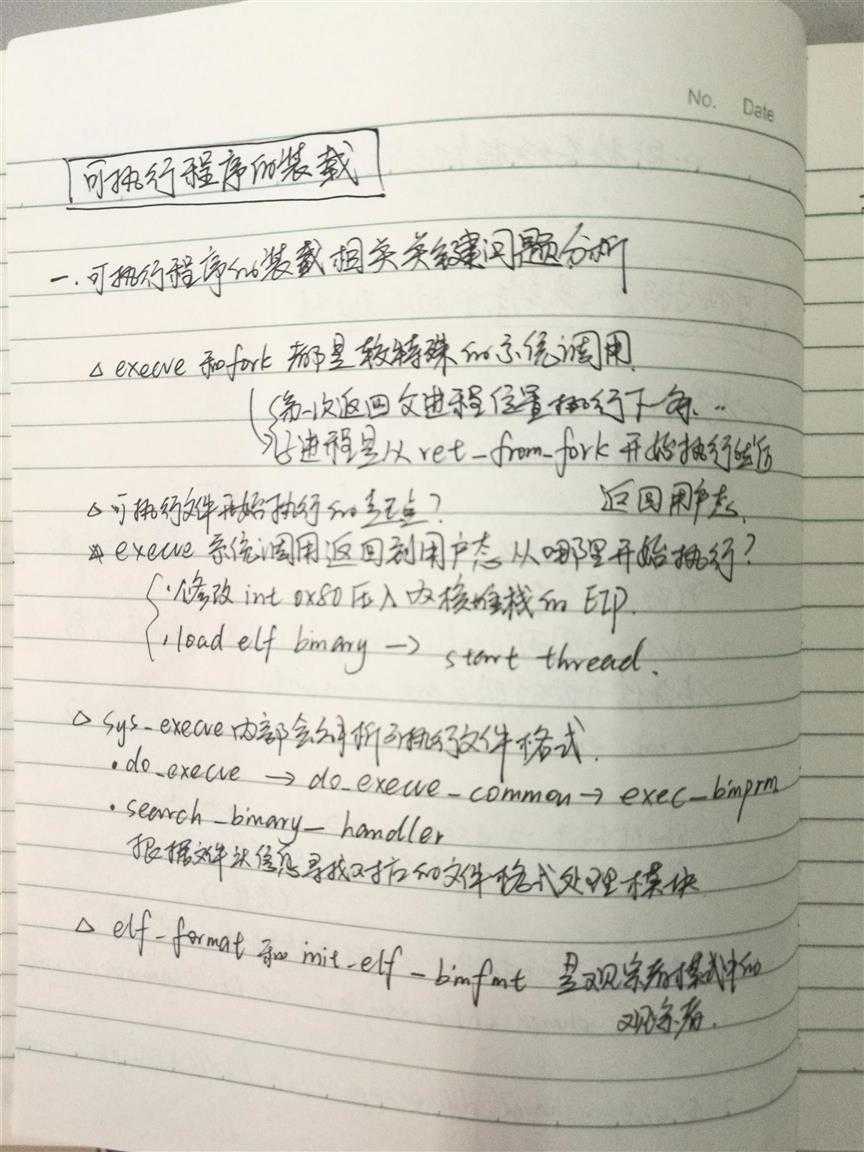 No. Date
可执行程序的装载
一. 可执行程序的装载相关关键问题分析
△ execve 和fork 都是较特殊的系统调用.
第一次返回父进程位置执行下一条..
子进程是从ret_from_fork 开始执行然后
返回用户态.
△ 可执行文件开始执行的起点?
△ execve 系统调用返回到用户态从哪里开始执行?
·修改 int 0x80 压入内核堆栈的 EIP.
·load elf binary → start thread.
△ sys_execve内部会解析可执行文件格式.
·do_execve → do_execve_common → exec_binprm
·search_binary_handler
根据文件头信息寻找对应的文件格式处理模块
△ elf_format 和 init_elf_binfmt 是观察者模式中的
观察者.